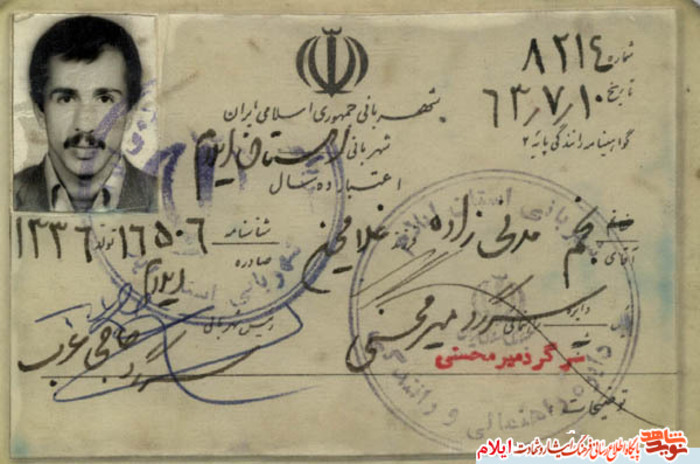 شماره ۸۲۱۴
تاریخ ۶۳٫۷٫۱۰
گواهینامه رانندگی پایه ۲
شهربانی جمهوری اسلامی ایران
شهربانی استان ایلام
اعتبار ده سال
آقای نجم مدلی زاده فرزند غلامحسین
شناسنامه ۱۶۵۰۶ تولد ۱۳۳۶
صادره ایلام
رئیس دایره راهنمائی سرگرد میرمحسنی
سرگرد میرمحسنی
رئیس شهربانی
سرگرد حاجی عرب
توضیحات
شهربانی استان ایلام
دایره راهنمائی و رانندگی
نوید شاهد
پایگاه اطلاع رسانی فرهنگ ایثار و شهادت ایلام